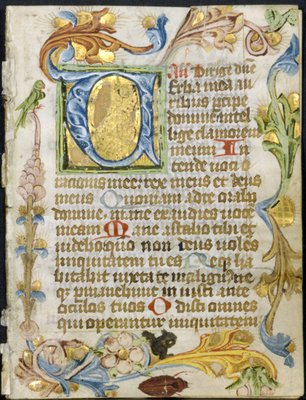 Añ Dirige dñe
Uerba mea au
ribus ꝑcipe
domine intel
lige clamorem
meum In
tende voci o
rationis mee rex meus et deus
meus Quoniam ad te orabo
domine mane exaudies voce
meam Mane astabo tibi et
videbo non deus voles
iniquitatem tu es Neqꝫ ha
bitabit iuxta te malignꝰ ne
qꝫ permanebunt iniusti ante
oculos tuos Odisti omnes
qui operantur iniquitatem